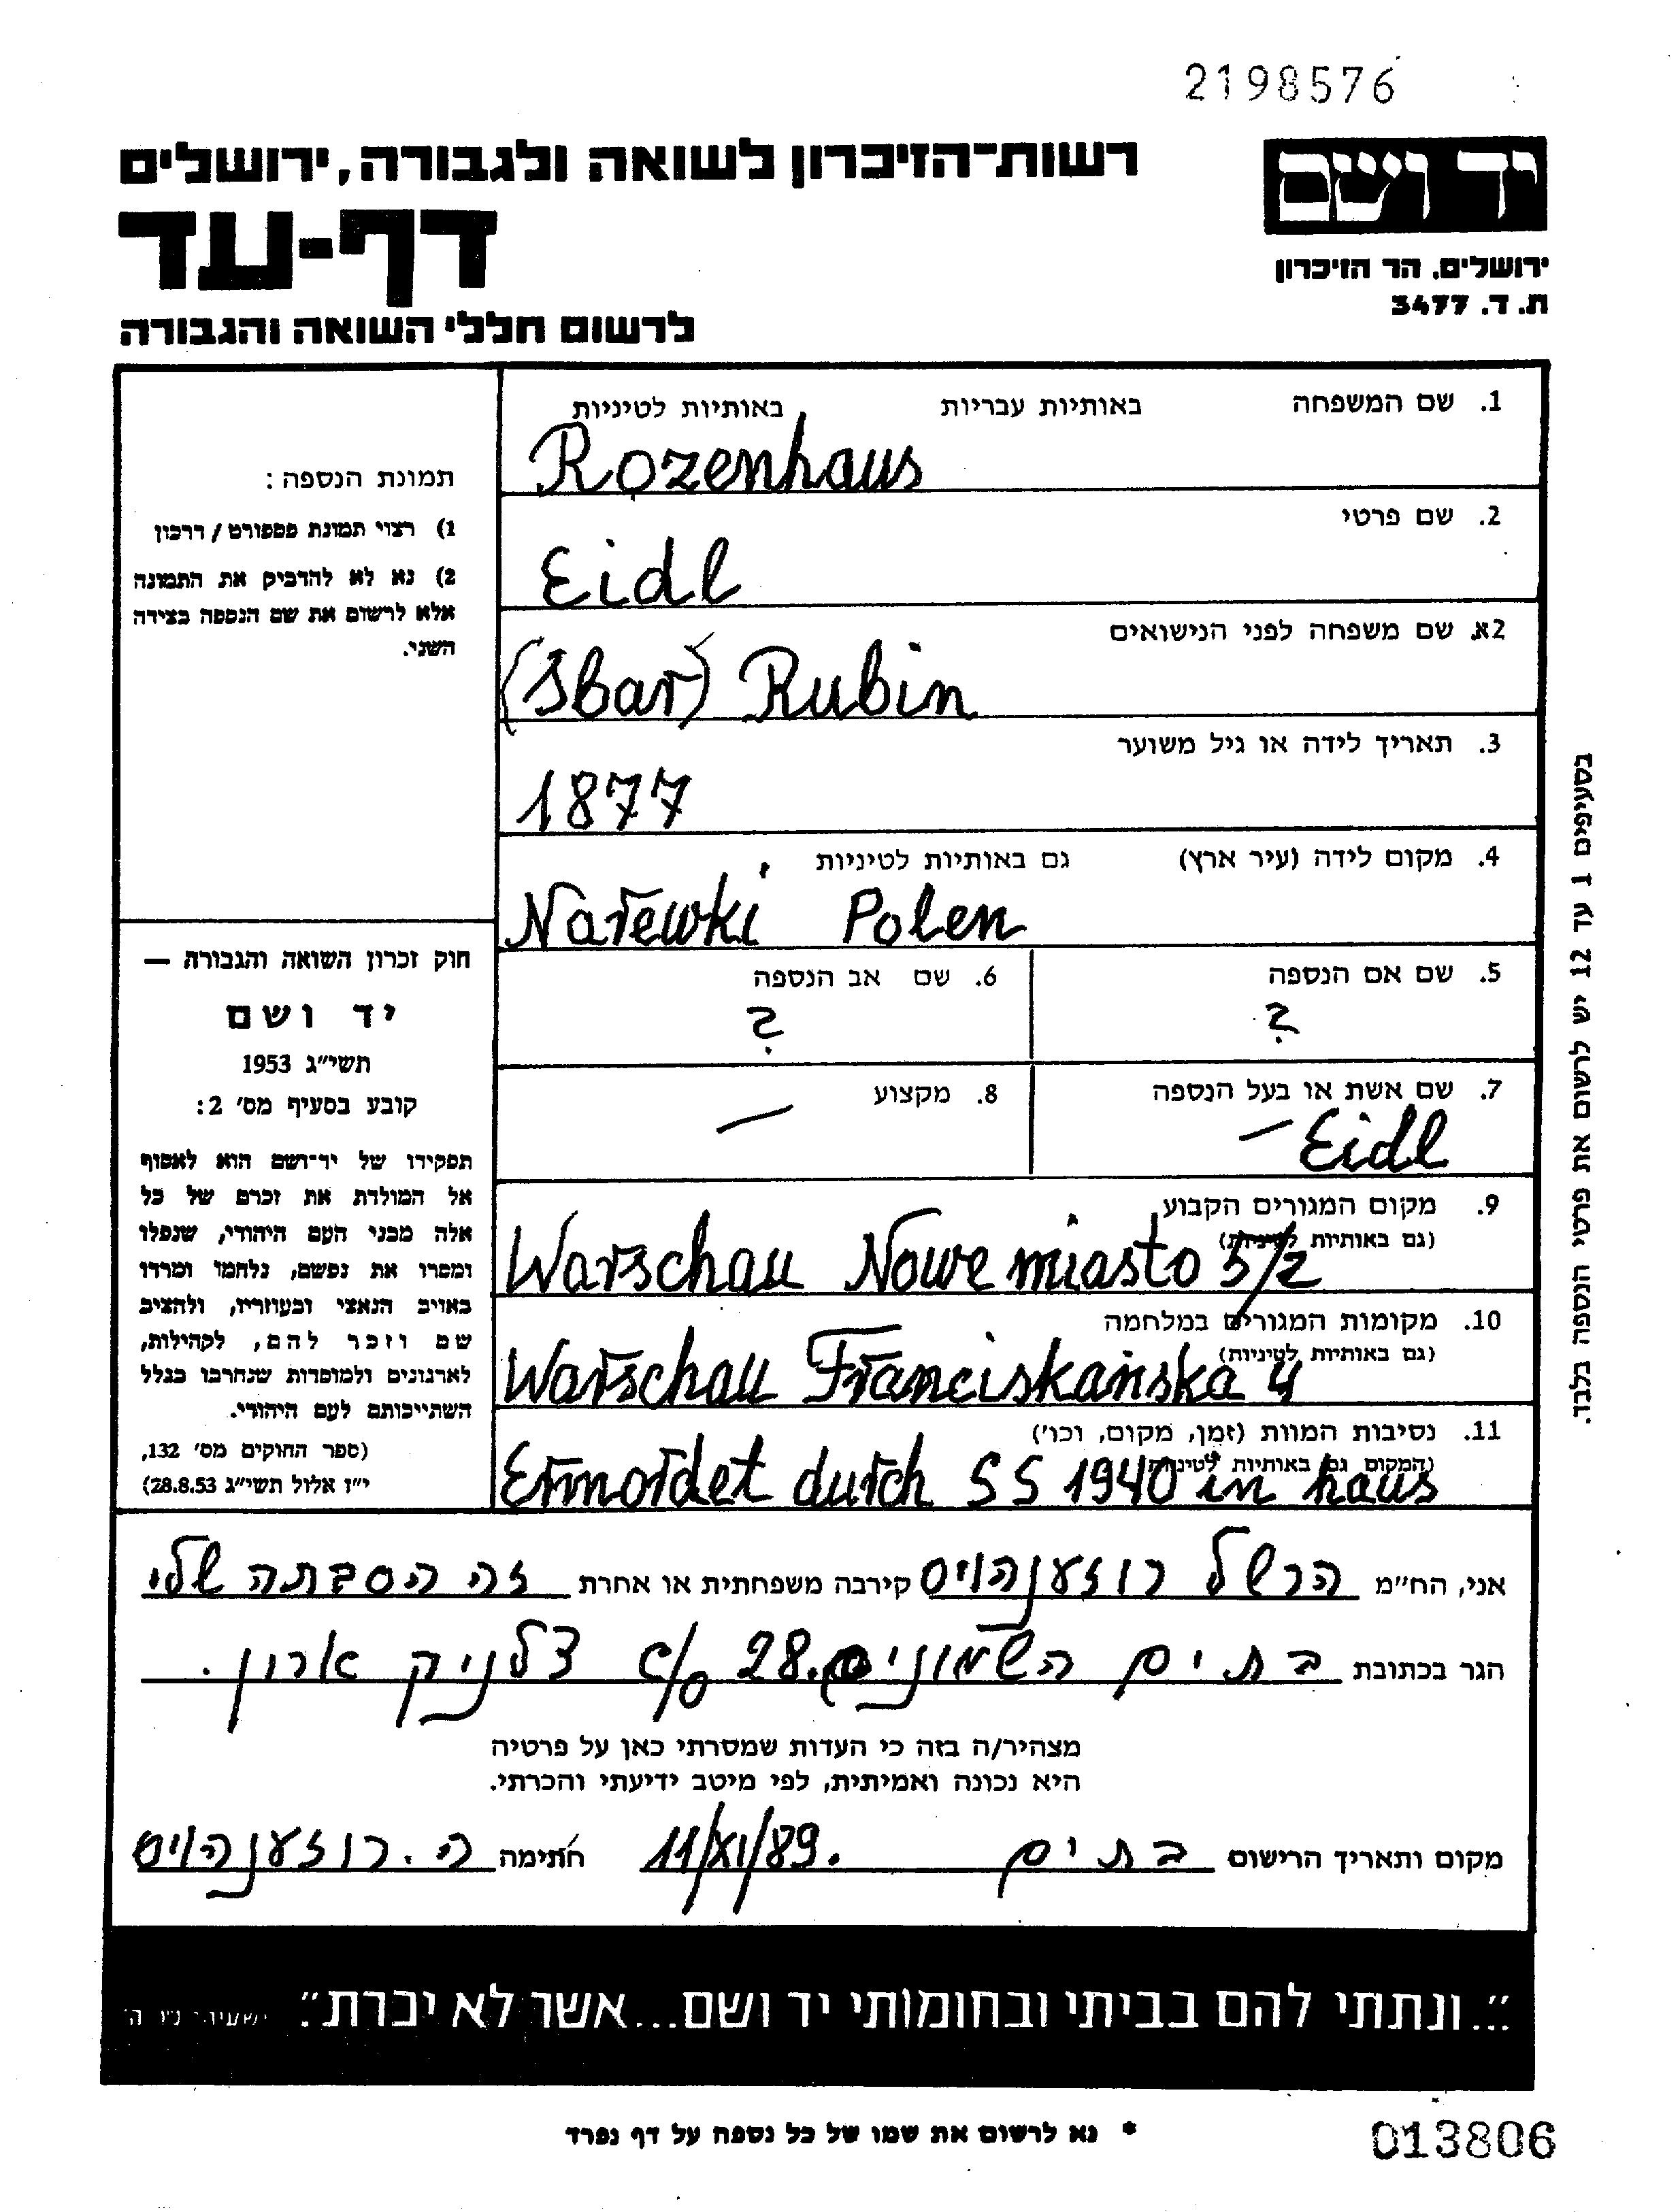 2198576
יד ושם
רשות־הזיכרון לשואה ולגבורה, ירושלים
דף-עד
ירושלים. הר הזיכרון
ת. ד. 3477
לרשום חללי השואה והגבורה
1. שם המשפחה באותיות עבריות באותיות לטיניות
Rozenhaus
2. שם פרטי
Eidl
2א. שם משפחה לפני הנישואים
(Sbar) Rubin
3. תאריך לידה או גיל משוער
1877
4. מקום לידה (עיר ארץ) גם באותיות לטיניות
Narewki Polen
5. שם אם הנספה
?
6. שם אב הנספה
?
7. שם אשת או בעל הנספה
– Eidl
8. מקצוע
—
9. מקום המגורים הקבוע
(גם באותיות לטיניות)
Warschau Nowe miasto 5/2
10. מקומות המגורים במלחמה
(גם באותיות לטיניות)
Warschau Franciskańska 4
11. נסיבות המוות (זמן, מקום, וכו')
(המקום גם באותיות לטיניות)
Ermordet durch SS 1940 in haus
תמונת הנספה:
1) רצוי תמונת פספורט / דרכון
2) נא לא להדביק את התמונה
אלא לרשום את שם הנספה בצידה
השני.
חוק זכרון השואה והגבורה —
יד ושם
תשי״ג 1953
קובע בסעיף מס׳ 2:
תפקידו של יד־ושם הוא לאסוף
אל המולדת את זכרם של כל
אלה מבני העם היהודי, שנפלו
ומסרו את נפשם, נלחמו ומרדו
באויב הנאצי ובעוזריו, ולהציב
שם וזכר להם, לקהילות,
לארגונים ולמוסדות שנחרבו בגלל
השתייכותם לעם היהודי.
(ספר החוקים מס׳ 132,
י״ז אלול תשי״ג 28.8.53)
בסעיפים 1 עד 12 יש לרשום את פרטי הנספה בלבד.
אני, הח״מ הרשל רוזענהויס קירבה משפחתית או אחרת זה הסבתה שלי.
הגר בכתובת בת ים השמונים 28. c/o צלניק ארון.
מצהיר/ה בזה כי העדות שמסרתי כאן על פרטיה
היא נכונה ואמיתית, לפי מיטב ידיעתי והכרתי.
מקום ותאריך הרישום בת ים 11/XI/89. חתימה ה. רוזענהויס
״...ונתתי להם בביתי ובחומותי יד ושם...אשר לא יכרת״. ישעיהו נ״ו ה׳
* נא לרשום את שמו של כל נספה על דף נפרד
013806